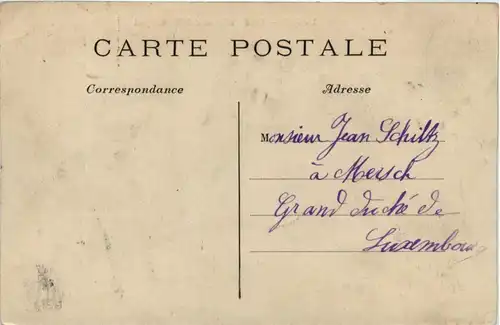 CARTE POSTALE
Correspondance
Adresse
Monsieur Jean Schiltz
à Mersch
Grand duché de
Luxembourg